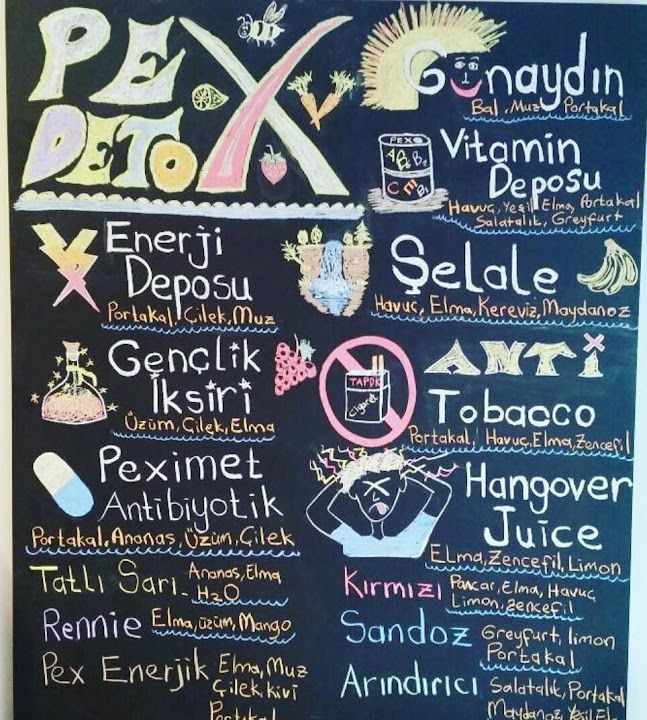 PEX
DETOX
Günaydın
Bal, Muz Portakal
PEX
A B2 B1
C E B6
Vitamin
Deposu
Havuç, Yeşil Elma, Portakal
Salatalık, Greyfurt
Enerji
Deposu
Portakal, Çilek, Muz
Şelale
Havuç, Elma, Kereviz, Maydanoz
Gençlik
İksiri
Üzüm, Çilek, Elma
TAPDK
Cigaret
ANTi
Tobacco
Portakal, Havuç, Elma, Zencefil
Peximet
Antibiyotik
Portakal, Ananas, Üzüm, Çilek
Hangover
Juice
Elma, Zencefil, Limon
Tatlı Sarı- Ananas, Elma
H2O
Rennie Elma, üzüm, Mango
Pex Enerjik Elma, Muz
Çilek, kivi
Portakal
Kırmızı Pancar, Elma, Havuç
Limon, zencefil
Sandoz Greyfurt, limon
Portakal
Arındırıcı Salatalık, Portakal
Maydanoz, Yeşil El